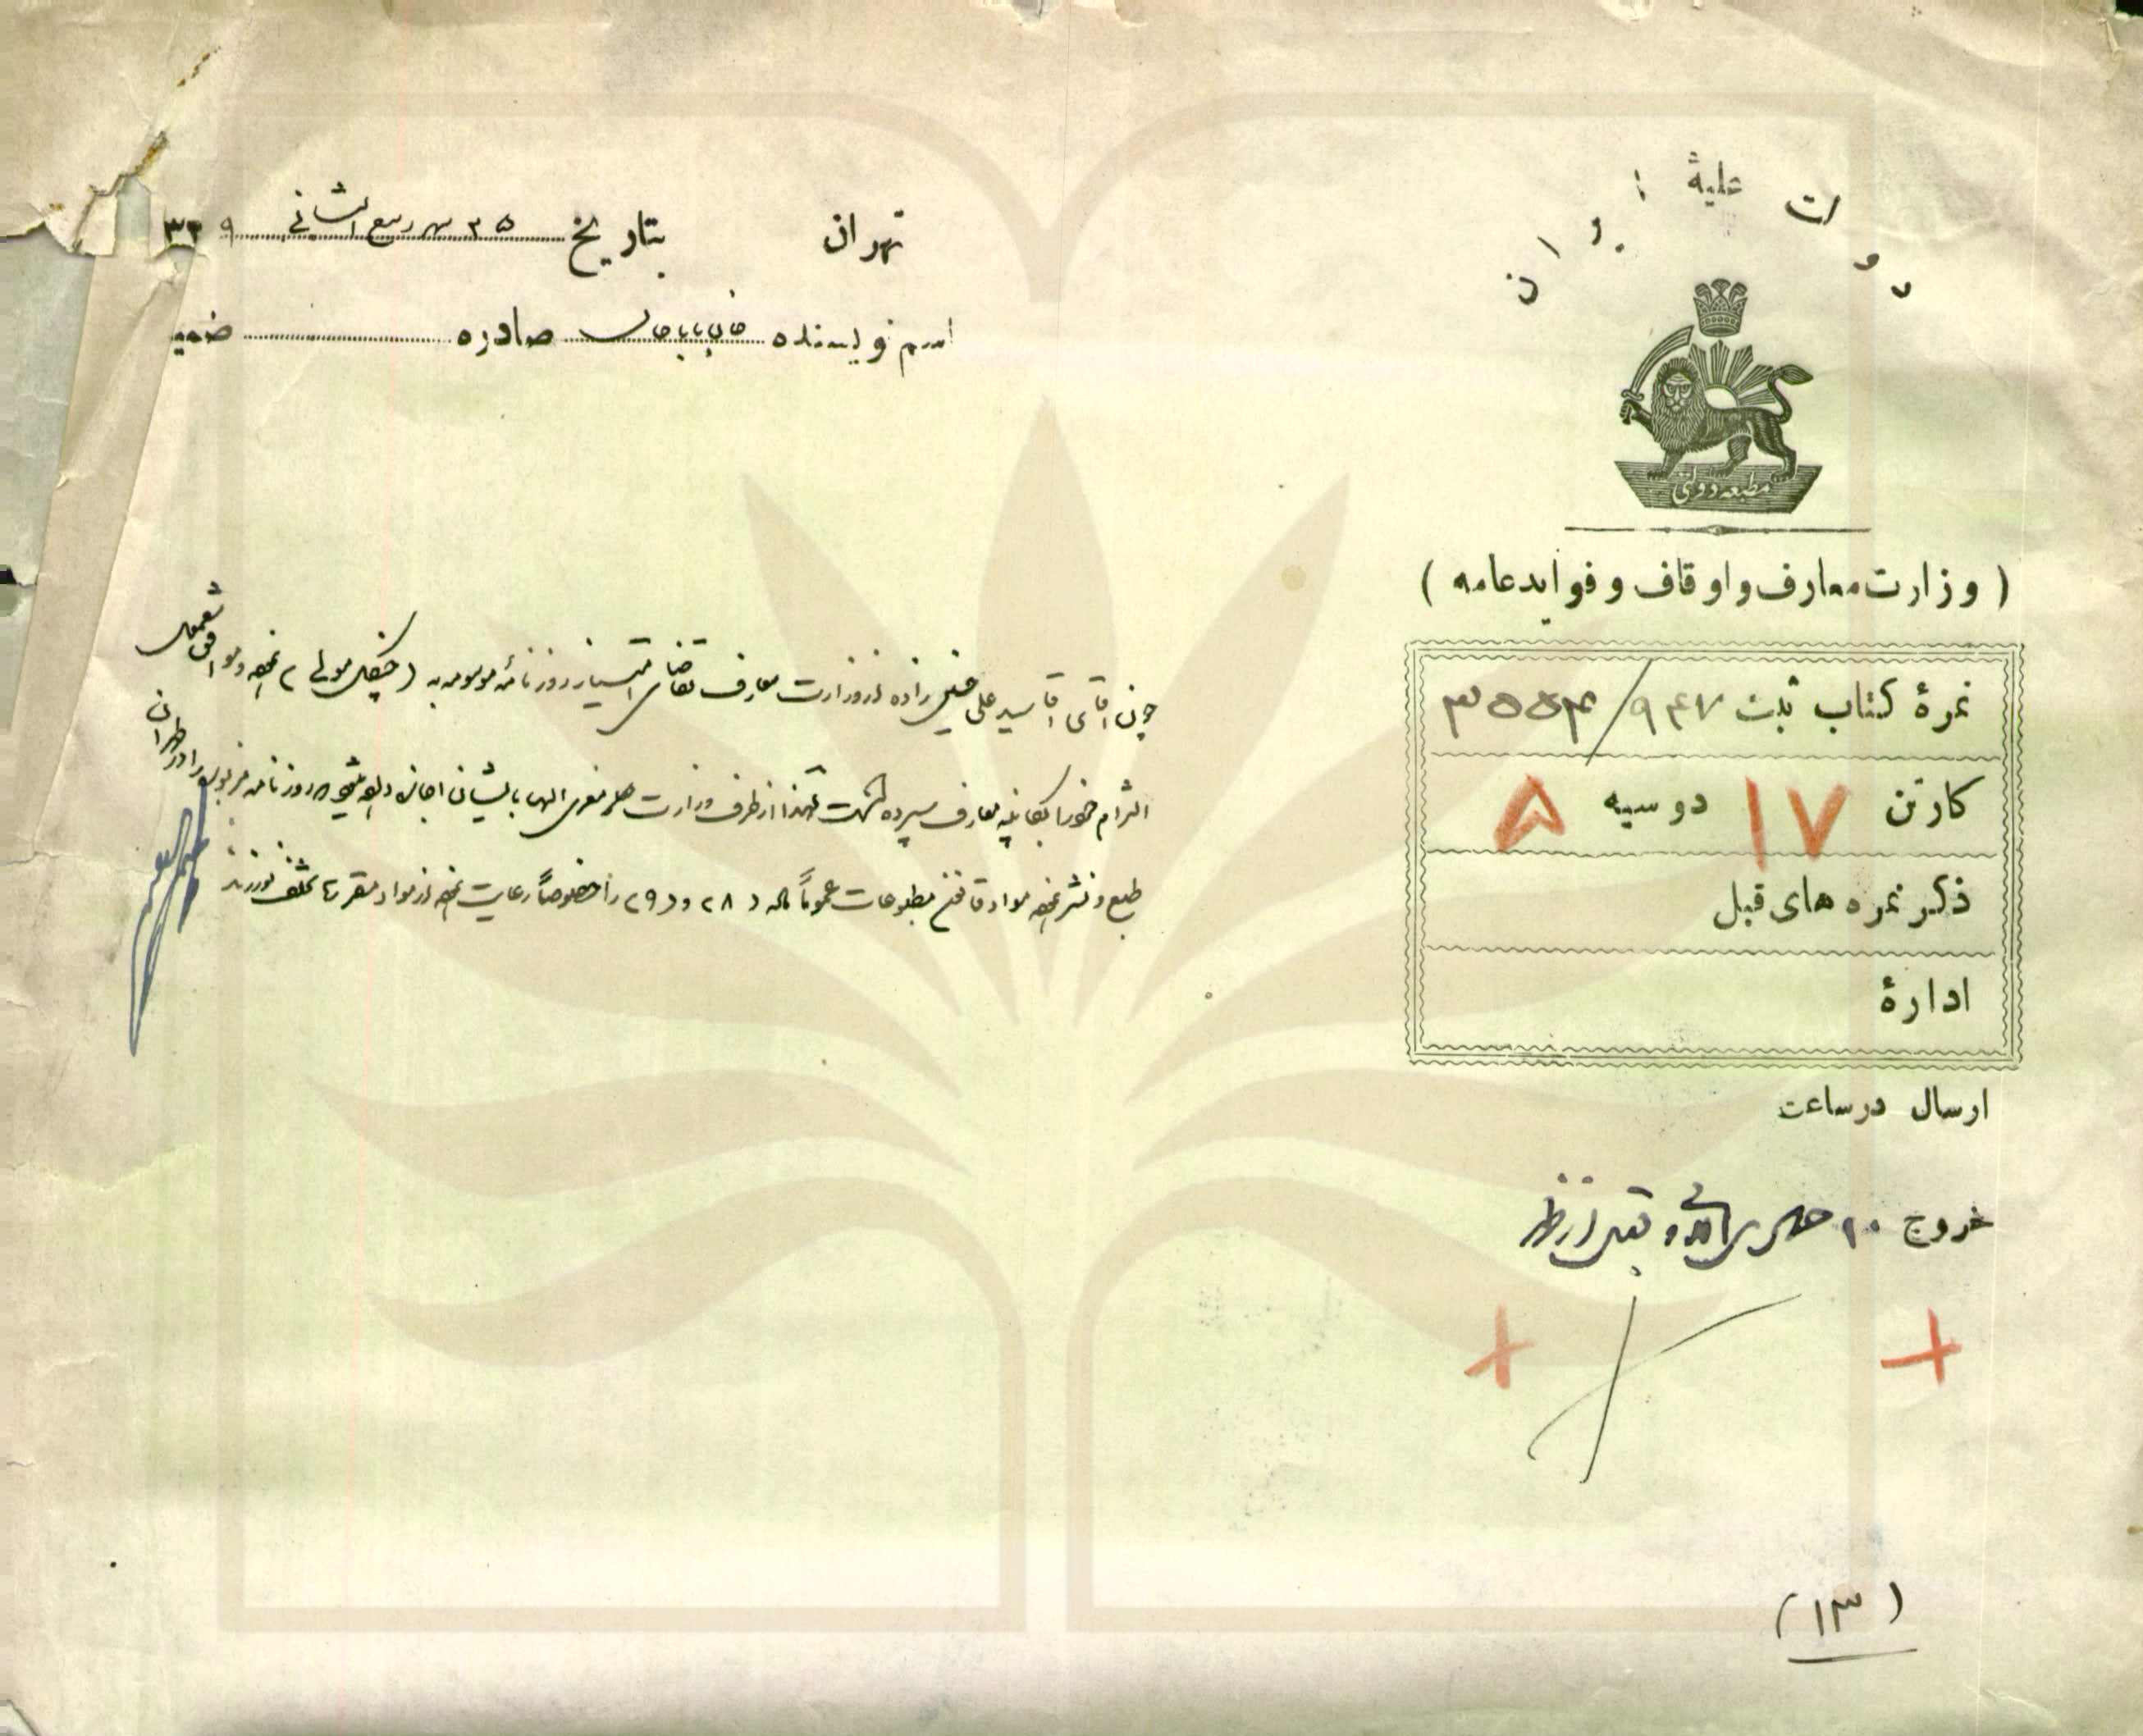 دولت علیهٔ ایران
مطبعه دولتی
(وزارت معارف و اوقاف و فواید عامه)
نمرهٔ کتاب ثبت ۳۵۵۴/۹۴۷
کارتن ۱۷ دوسیه ۵
ذکر نمره های قبل
ادارهٔ
ارسال در ساعت
خروج
(۱۳)
تهران بتاریخ ۲۵ شهر ربیع الثانی ۳۳۹
اسم نویسنده خان باباخان صادره ضمیمه
چون آقای آقا سید علی زاده از وزارت معارف تقاضای امتیاز روزنامهٔ موسومه به (جنگل مولی) نموده و موافق معمول
التزام خود را بکابینه معارف سپرده است لهذا از طرف وزارت باایشان اجازه داده میشود روزنامه مزبوره را در طهران
طبع و نشر نموده مواد قانون مطبوعات عموماً ماده ۲۸ و ۲۹ را خصوصاً رعایت نموده از مواد مقرره تخلف نورزند